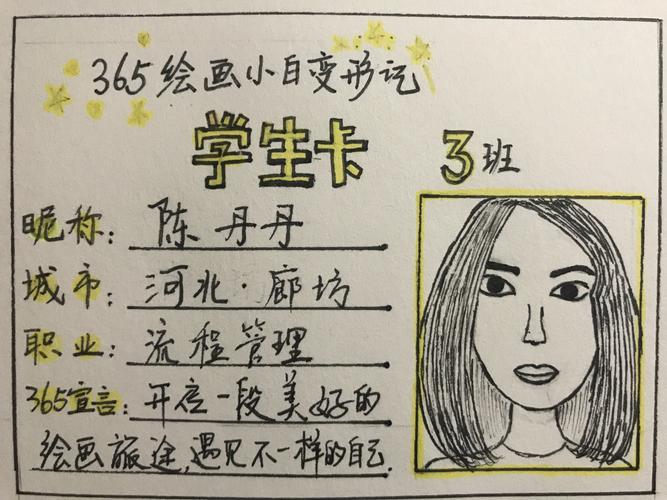 365绘画小白变形记
学生卡 3班
昵称：陈丹丹
城市：河北·廊坊
职业：流程管理
365宣言：开启一段美好的
绘画旅途，遇见不一样的自己